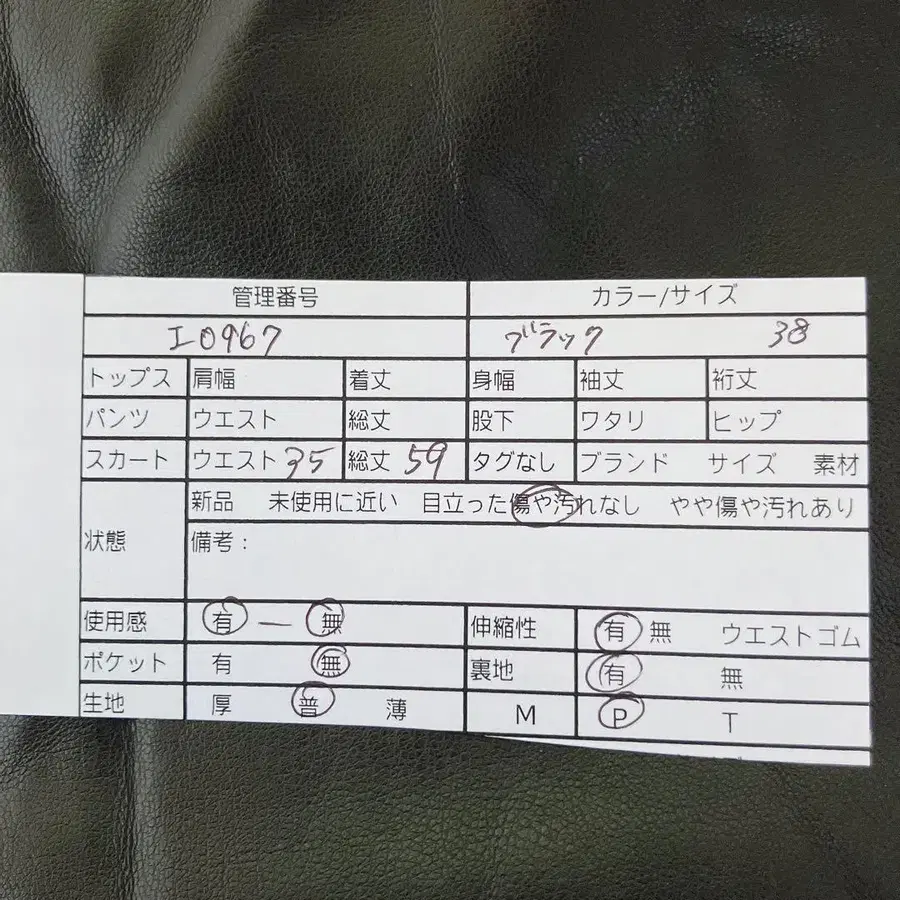 管理番号 カラー/サイズ
I0967 ブラック 38
トップス 肩幅 着丈 身幅 袖丈 裄丈
パンツ ウエスト 総丈 股下 ワタリ ヒップ
スカート ウエスト 35 総丈 59 タグなし ブランド サイズ 素材
新品 未使用に近い 目立った傷や汚れなし やや傷や汚れあり
状態 備考：
使用感 有 — 無 伸縮性 有 無 ウエストゴム
ポケット 有 無 裏地 有 無
生地 厚 普 薄 M P T